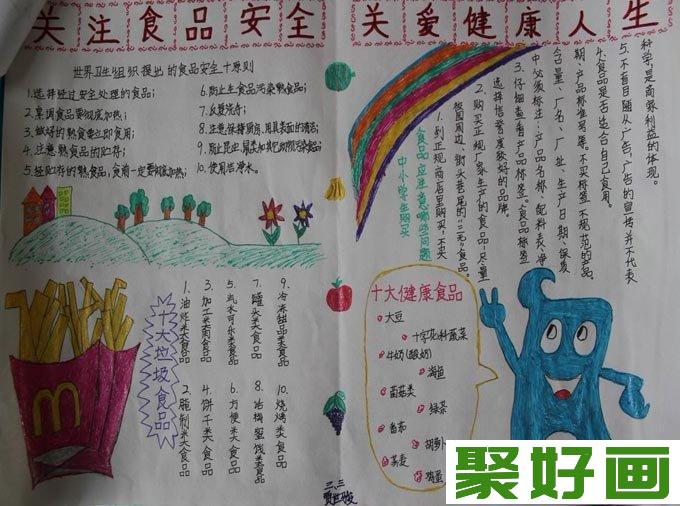 关注食品安全 关爱健康人生
世界卫生组织提出的食品安全十原则
1.选择经过安全处理的食品；
2.烹调食品要彻底加热；
3.做好的熟食要立即食用；
4.注意熟食的贮存；
5.经贮存的熟食品，食前一定要彻底加热；
6.防止生食品污染熟食品；
7.反复洗手；
8.注意保持厨房、用具表面的清洁；
9.防止昆虫、鼠类和其它动物污染食品；
10.使用洁净水。
中小学生购买
食品应注意哪些问题
1.到正规商店里购买，不买
校园周边、街头巷尾的“三无”食品。
2.购买正规厂家生产的食品，尽量
选择信誉度较好的品牌。
3.仔细查看产品标签。食品标签
中必须标注：产品名称、配料表、净
含量、厂名、厂址、生产日期、保质
期、产品标准号等。不买标签不规范的产品。
4.食品是否适合自己食用。
5.不盲目随从广告，广告的宣传并不代表
科学，是商家利益的体现。
M
十大垃圾食品
1.油炸类食品
2.腌制类食品
3.加工类肉食品
4.饼干类食品
5.汽水可乐类食品
6.方便类食品
7.罐头类食品
8.话梅蜜饯类食品
9.冷冻甜品类食品
10.烧烤类食品
十大健康食品
大豆
十字花科蔬菜
牛奶(酸奶)
海鱼
菌菇类
绿茶
番茄
胡萝卜
荞麦
鸡蛋
三、三
聚好画